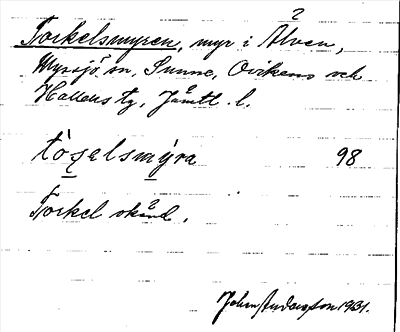 Torkelsmyren, myr i Ålven,
Myssjö sn, Sunne, Ovikens och
Hallens tg, Jämtl. l.
tò̜ʂelsmýra 98
Torkel okänd.
John Andersson 1931.